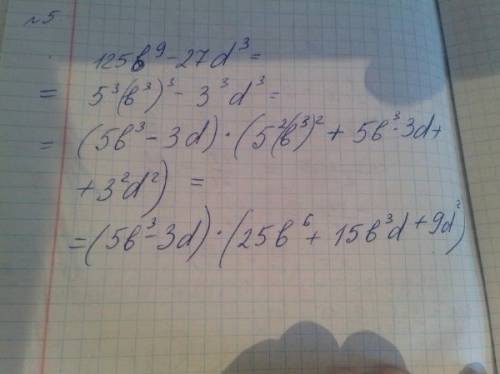 №5
125в⁹-27d³=
= 5³(в³)³ - 3³d³=
= (5в³-3d)·(5²(в³)²+5в³·3d+
+3²d²) =
=(5в³-3d)·(25в⁶+15в³d+9d²)